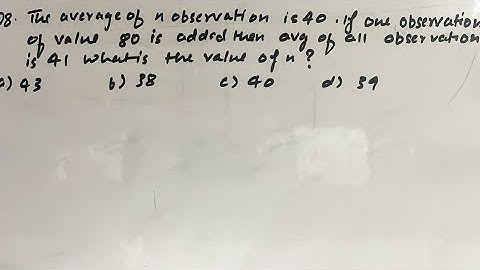 08. The average of n observation is 40. If one observation
of value 80 is added then avg of all observation
is 41 what is the value of n?
a) 43 b) 38 c) 40 d) 39